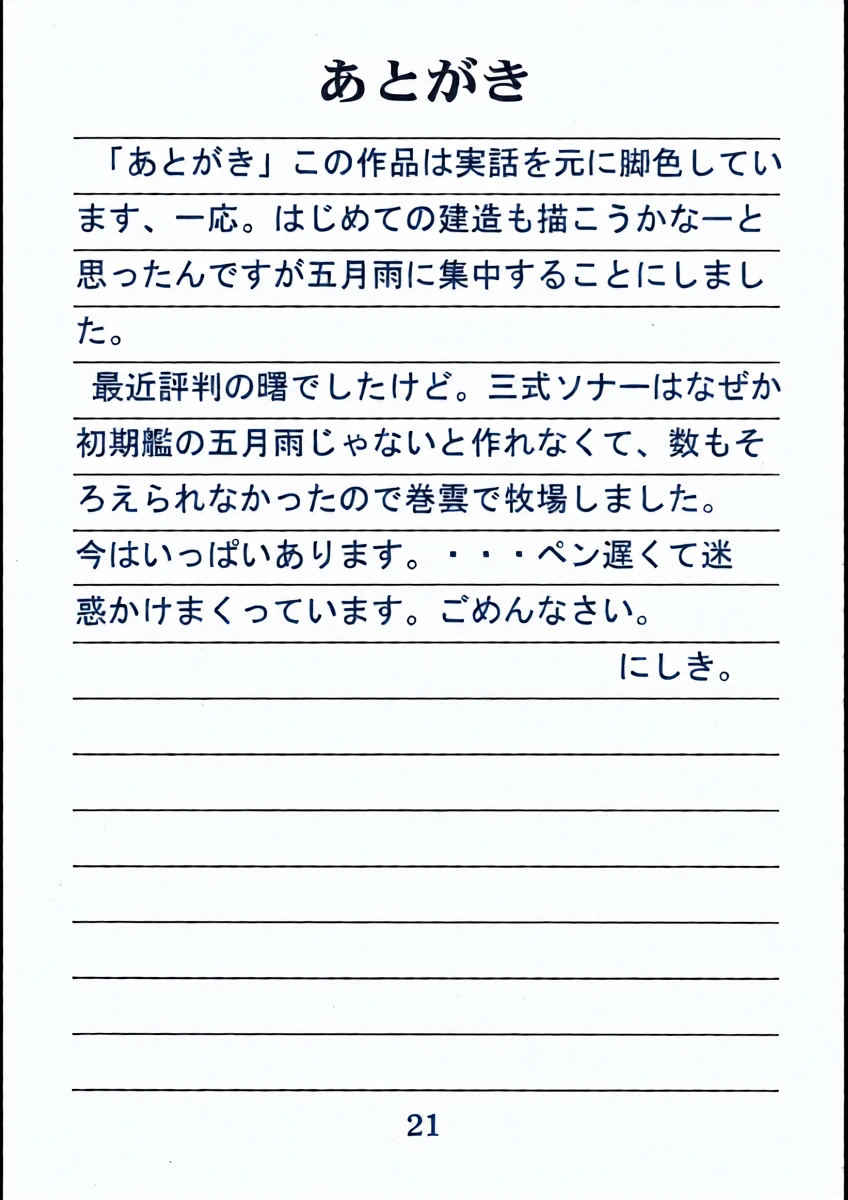 あとがき
「あとがき」この作品は実話を元に脚色してい
ます、一応。はじめての建造も描こうかなーと
思ったんですが五月雨に集中することにしまし
た。
最近評判の曙でしたけど。三式ソナーはなぜか
初期艦の五月雨じゃないと作れなくて、数もそ
ろえられなかったので巻雲で牧場しました。
今はいっぱいあります。・・・ペン遅くて迷
惑かけまくっています。ごめんなさい。
にしき。
21